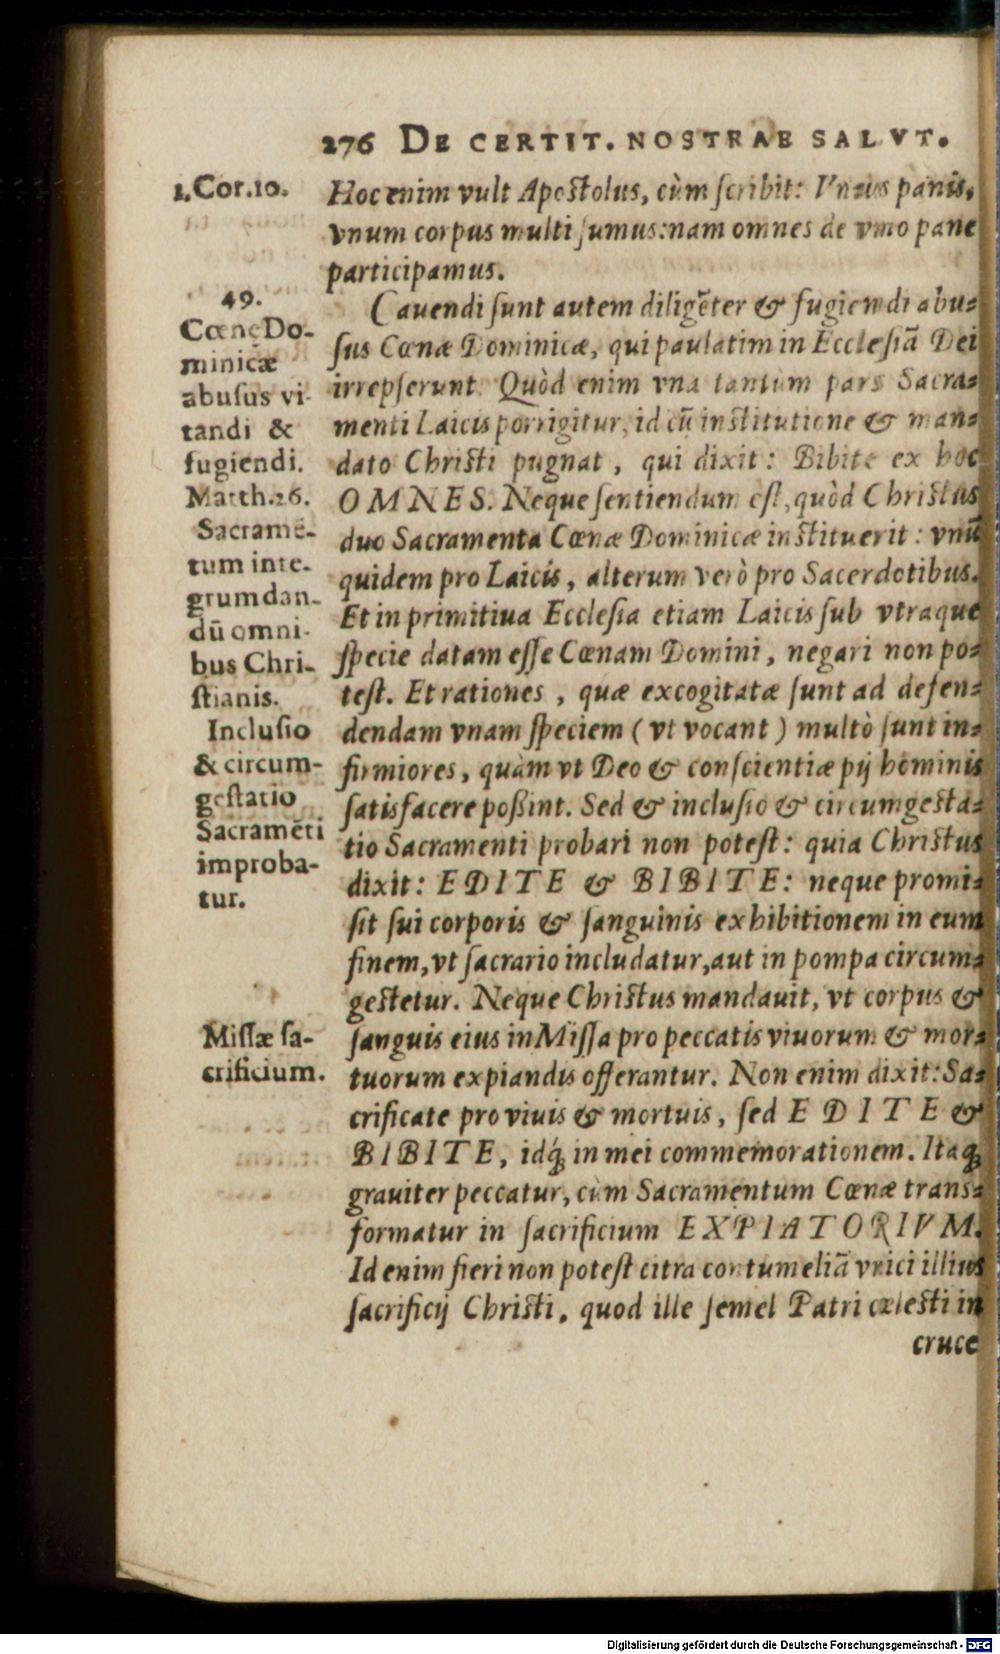 276 DE CERTIT. NOSTRAE SALVT.
1.Cor.10.
Hoc enim vult Apostolus, cùm scribit: Vnus panis,
vnum corpus multi sumus: nam omnes de vno pane
participamus.
49.
Cœnę Do-
minicæ
abusus vi-
tandi &
fugiendi.
Matth.26.
Sacramē-
tum inte-
grum dan-
dū omni-
bus Chri-
stianis.
Inclusio
& circum-
gestatio
Sacramēti
improba-
tur.
Missæ sa-
crificium.
Cavendi sunt autem diligēter & fugiendi abu-
sus Cœnæ Dominicæ, qui paulatim in Ecclesiā Dei
irrepserunt. Quòd enim vna tantum pars Sacra-
menti Laicis porrigitur, id cū institutione & man-
dato Christi pugnat, qui dixit: Bibite ex hoc
OMNES. Neque sentiendum est, quòd Christus
duo Sacramenta Cœnæ Dominicæ instituerit: vnū
quidem pro Laicis, alterum verò pro Sacerdotibus.
Et in primitiua Ecclesia etiam Laicis sub vtraque
specie datam esse Cœnam Domini, negari non po-
test. Et rationes, quæ excogitatæ sunt ad defen-
dendam vnam speciem (vt vocant) multò sunt in-
firmiores, quàm vt Deo & conscientiæ pij hominis
satisfacere possint. Sed & inclusio & circumgesta-
tio Sacramenti probari non potest: quia Christus
dixit: EDITE & BIBITE: neque promi-
sit sui corporis & sanguinis exhibitionem in eum
finem, vt sacrario includatur, aut in pompa circum-
gestetur. Neque Christus mandauit, vt corpus &
sanguis eius in Missa pro peccatis viuorum & mor-
tuorum expiandis offerantur. Non enim dixit: Sa-
crificate pro viuis & mortuis, sed EDITE &
BIBITE, idq́; in mei commemorationem. Itaq;
grauiter peccatur, cùm Sacramentum Cœnæ trans-
formatur in sacrificium EXPIATORIVM.
Id enim fieri non potest citra contumeliā vnici illius
sacrificij Christi, quod ille semel Patri cælesti in
cruce
Digitalisierung gefördert durch die Deutsche Forschungsgemeinschaft - DFG